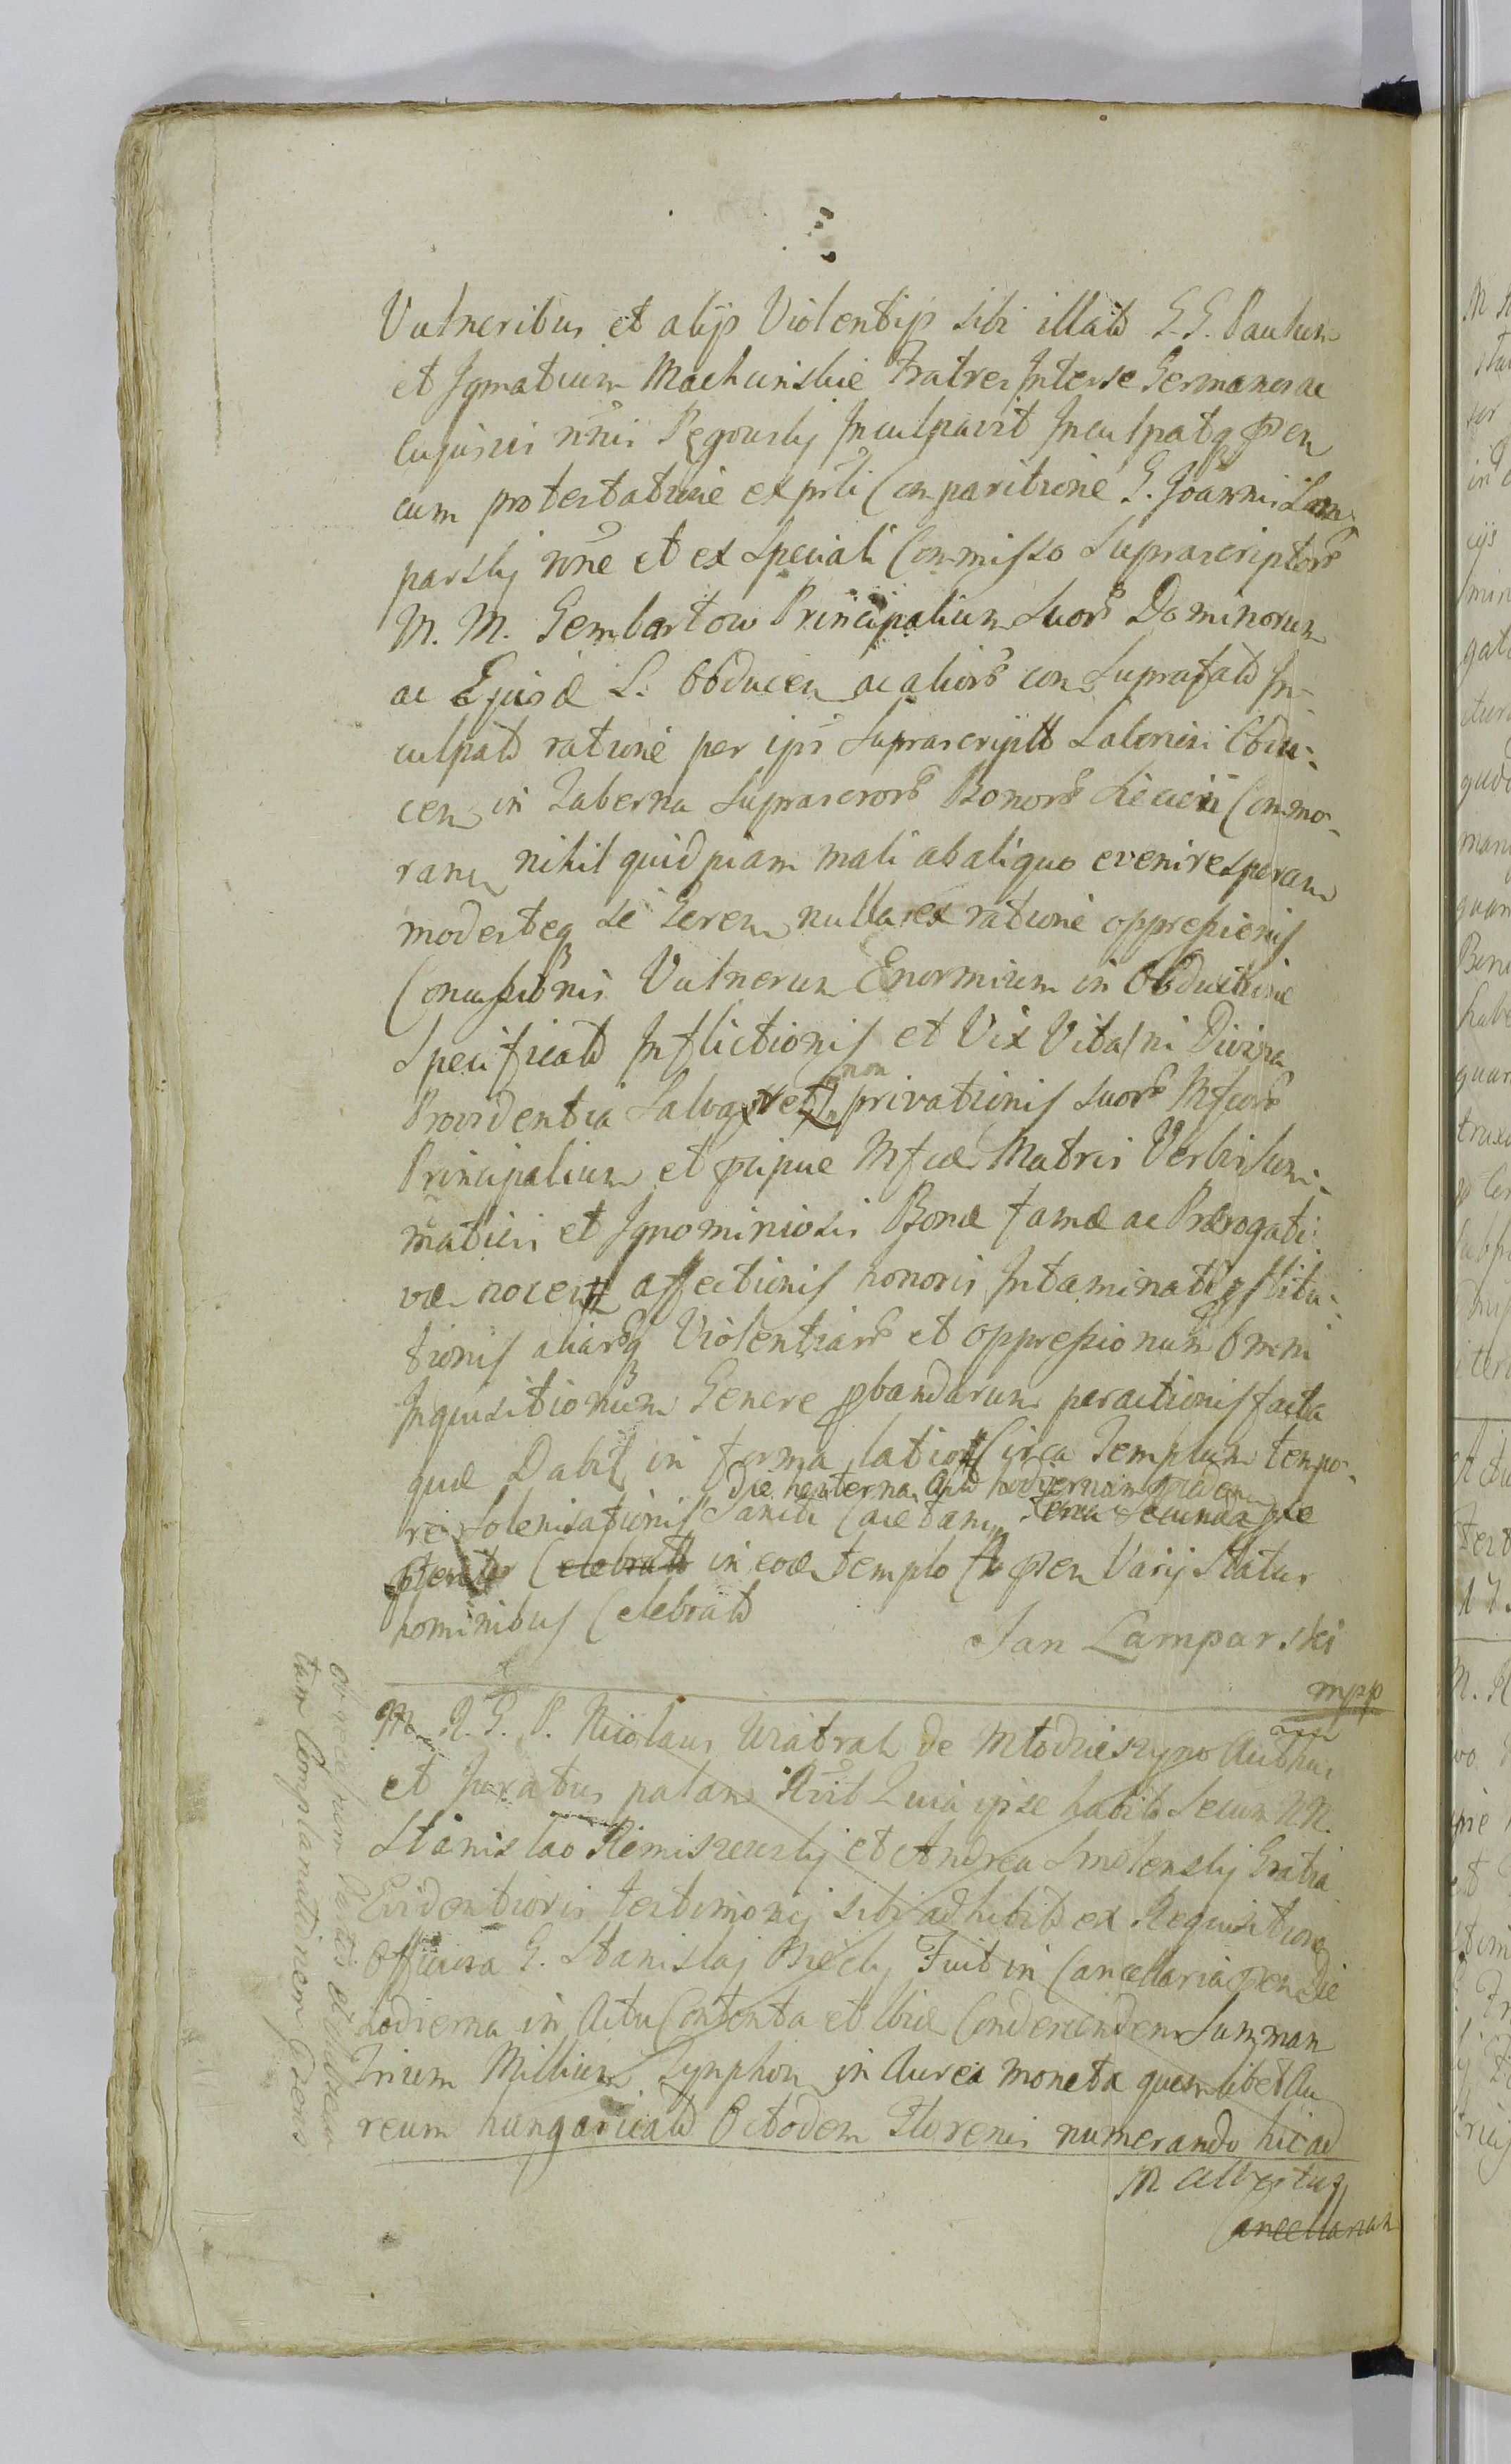 Vulneribus et alijs Violentijs sibi illatis G.G. Paulum
et Ignatium Machunskie Fratres Interse Germanos ac
cujusvis nnis Pęgowskij Inculpavit Inculpatq pen
cum protestatione ex prsti Comparitione G. Joannis Lam-
parskij nõne et ex speciali Commisso Suprascriptors
M. M. Gembartow Principalium Suors Dominorum
ac Ejusd S. Obducen ac aliors con Suprafatis In-
culpatis ratione per ips Suprascriptts Laboriosi Obdu-
cen in Taberna Suprascrors Bonors Commo-
ran nihil quidpiam mali ab aliquo evenire speran
modesteq se Geren nulla ex ratione oppressionis
Concussionis Vulnerum Enormium in Obductione
Specificatis Inflictionis et Vix Vita ni Divina
Providentia Salvas non privationis suors Mfcors
Principalium et pcipue Mfcæ Matris Verbis sum-
maticis et Ignominiosis Bonæ famæ ac Prærogati-
væ nocen affectionis honoris Intaminati pstitu-
tionis aliarsq Violentiars et oppressionum Omni
Inquisitionum Genere pbandarum peractionis facta
quæ Dabit in forma latior Circa Templum tempo-
die hesterna
re Solenisationis Sancti Caietani secunda
Celebratts in eod templo pen Varij Status
hominibus Celebratis
Jan Lamparski
mpp
M. R. G. P. Nicolaus Wiatrak de Młodzieszyno Authen
et Juratus palam Rcvit Quia ipse habits secum N.N.
Stanislao Remiszewskij et Andrea Smolenskij Gratia
Evidentioris testimonij sibi adhibitis ex Requisitione
Officiosa G. Stanislaj Bieckij Fuit in Cancellaria pen Die
hodierna in Actu Contenta et Ibid Condescenden Summam
Trium Millium Tynphon in Aurea moneta quemlibet Au
reum hungaricalis Octodem Florenis numerando hic ad
M Albertus
Cancellariam
tam Complanationem Gdens